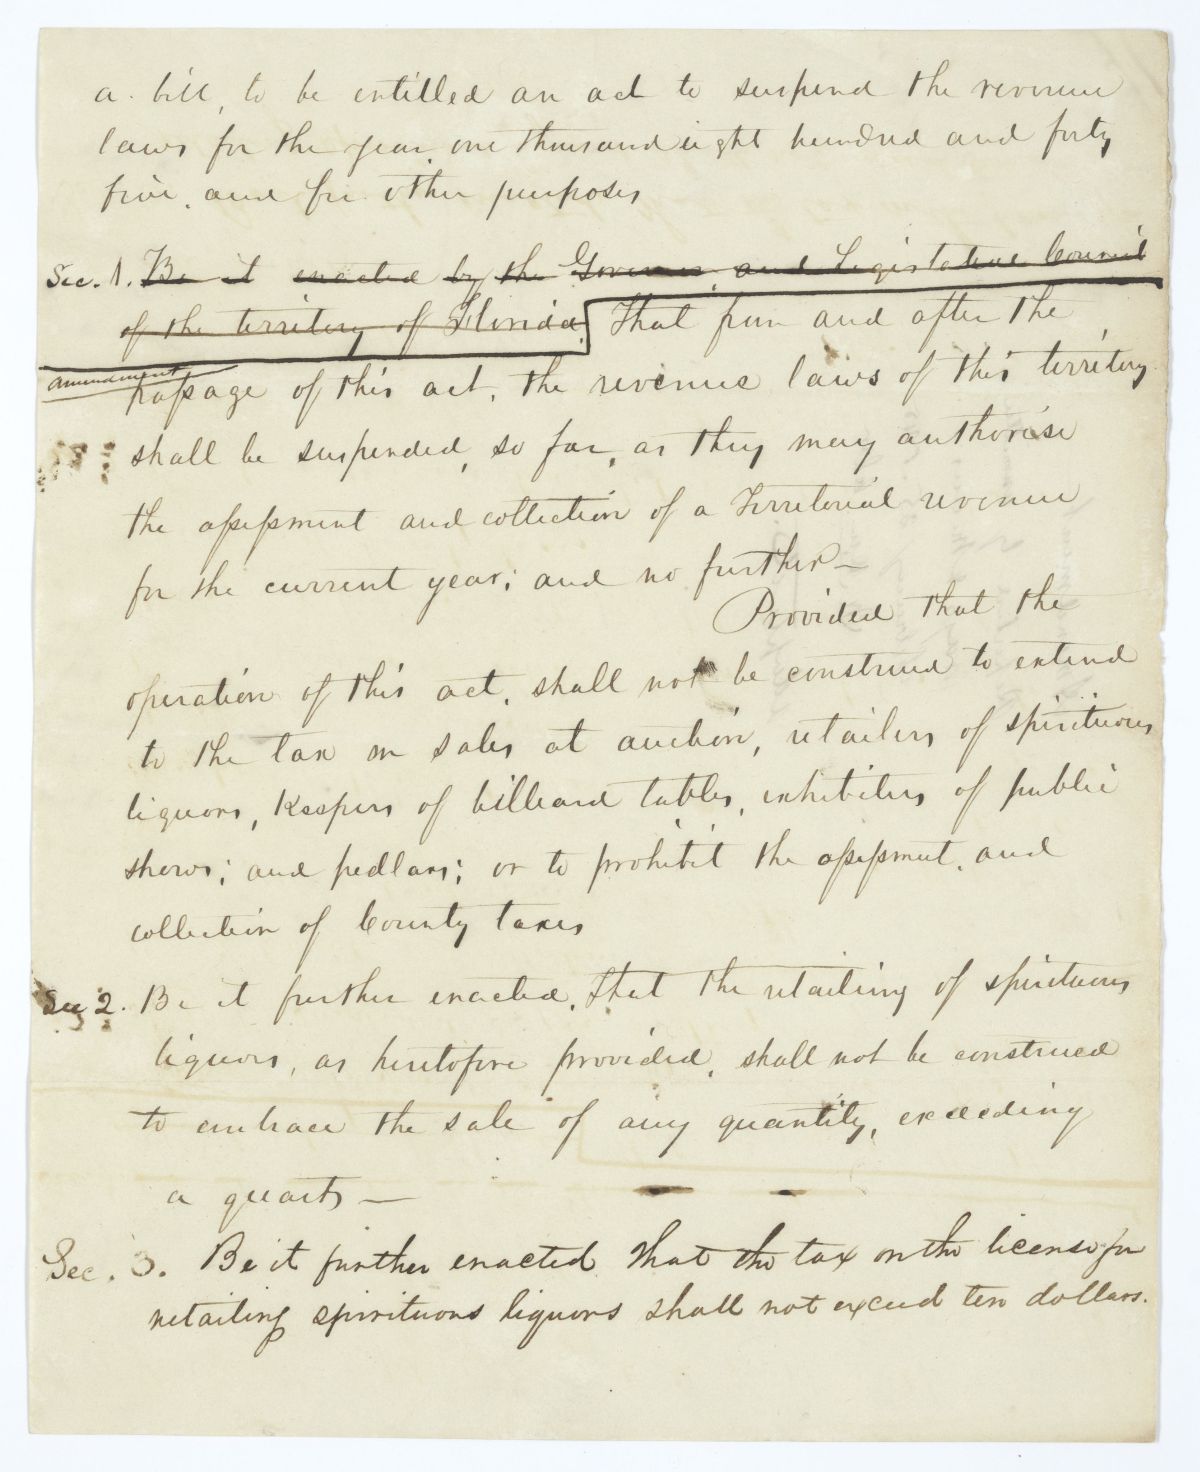 a bill, to be entitled an act to suspend the revenue
laws for the year one thousand eight hundred and forty
five, and for other purposes
Sec. 1. Be it enacted by the Governor and Legislative Council
of the territory of Florida, That from and after the
amendment
passage of this act, the revenue laws of this territory
shall be suspended, so far, as they may authorise
the assessment and collection of a Territorial revenue
for the current year; and no further—
Provided that the
operation of this act, shall not be construed to extend
to the tax on sales at auction, retailers of spirituous
liquors, Keepers of billiard tables, exhibiters of public
shows; and pedlars; or to prohibit the assessment, and
collection of County taxes
Sec 2. Be it further enacted, that the retailing of spirituous
liquors, as heretofore provided, shall not be construed
to embrace the sale of any quantity, exceeding
a quart—
Sec. 3. Be it further enacted That the tax on the license for
retailing spirituous liquors shall not exceed ten dollars.